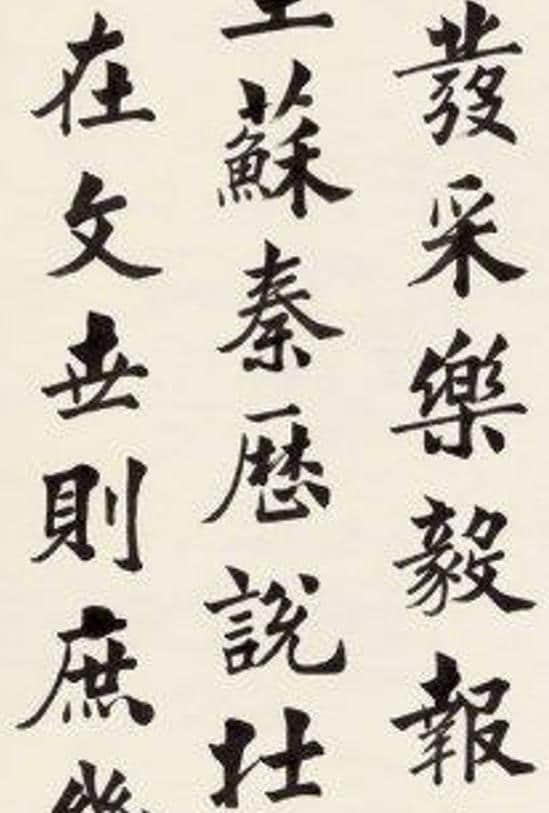 發采樂毅報
蘇秦歷說壯
在文世則庶幾